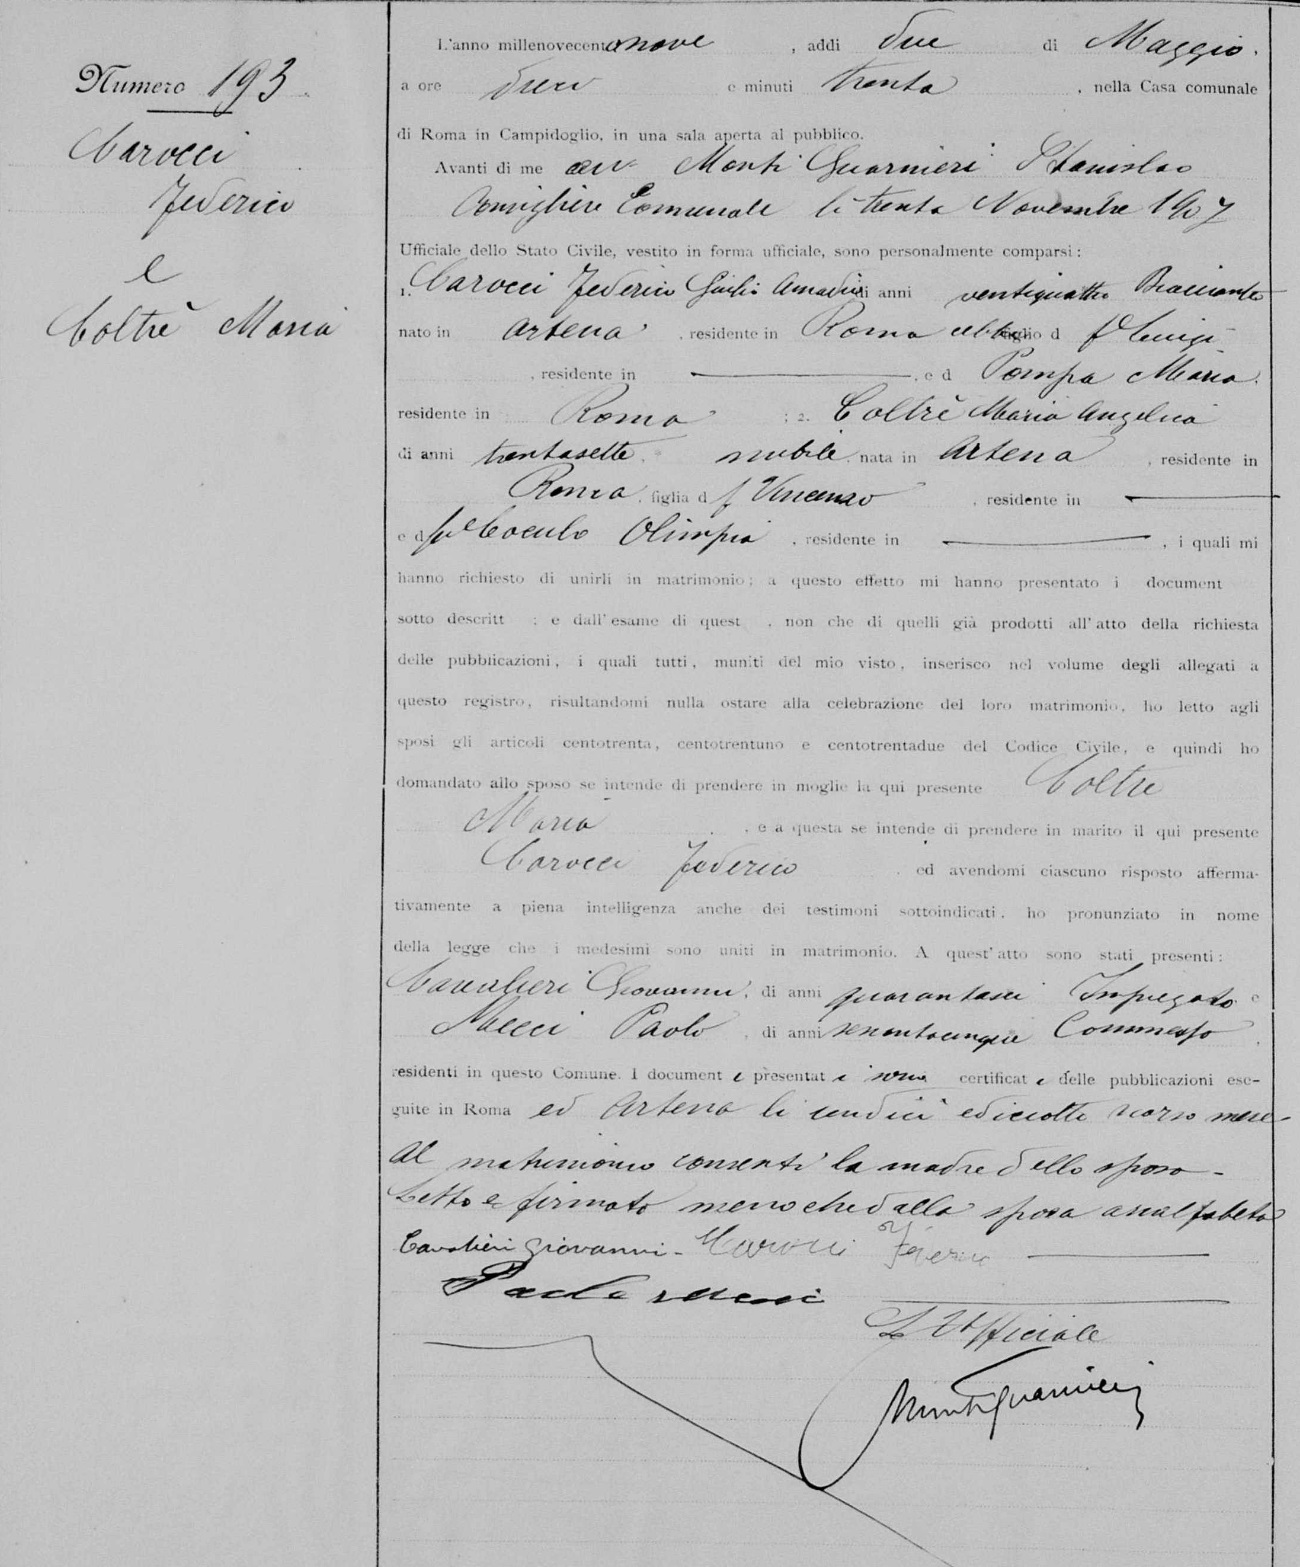 Numero 193
Carocci
Federico
e
Coltrè Maria
L'anno millenovecentonove , addi due di Maggio.
a ore dieci e minuti trenta , nella Casa comunale
di Roma in Campidoglio, in una sala aperta al pubblico.
Avanti di me avv Monti Guarnieri Stanislao
Consigliere Comunale li trenta Novembre 1907
Ufficiale dello Stato Civile, vestito in forma ufficiale, sono personalmente comparsi:
1. Carocci Federico Giulio Amadio di anni ventiquattro Bracciante
nato in Artena , residente in Roma celibe figlio d fu Luigi
, residente in , e d Pompa Maria
residente in Roma ; 2. Coltrè Maria Angelica
di anni trentasette nubile nata in Artena , residente in
Roma , figlia d fu Vincenzo , residente in
e d fu Coculo Olimpia , residente in , i quali mi
hanno richiesto di unirli in matrimonio; a questo effetto mi hanno presentato i document
sotto descritt ; e dall'esame di quest , non che di quelli già prodotti all'atto della richiesta
delle pubblicazioni, i quali tutti, muniti del mio visto, inserisco nel volume degli allegati a
questo registro, risultandomi nulla ostare alla celebrazione del loro matrimonio, ho letto agli
sposi gli articoli centotrenta, centotrentuno e centotrentadue del Codice Civile, e quindi ho
domandato allo sposo se intende di prendere in moglie la qui presente Coltrè
Maria , e a questa se intende di prendere in marito il qui presente
Carocci Federico ed avendomi ciascuno risposto afferma-
tivamente a piena intelligenza anche dei testimoni sottoindicati, ho pronunziato in nome
della legge che i medesimi sono uniti in matrimonio. A quest'atto sono stati presenti:
Cavalieri Giovanni, di anni quarantasei Impiegato e
Paolo , di anni sessantacinque Commesso
residenti in questo Comune. I document i presentat i sono certificat i delle pubblicazioni ese-
guite in Roma ed Artena li undici e diciotto scorso mese
Al matrimonio consentì la madre dello sposo -
Letto e firmato meno che dalla sposa analfabeta
Cavalieri Giovanni - Carocci Federico
Paolo
L'Ufficiale
Monti Guarnieri